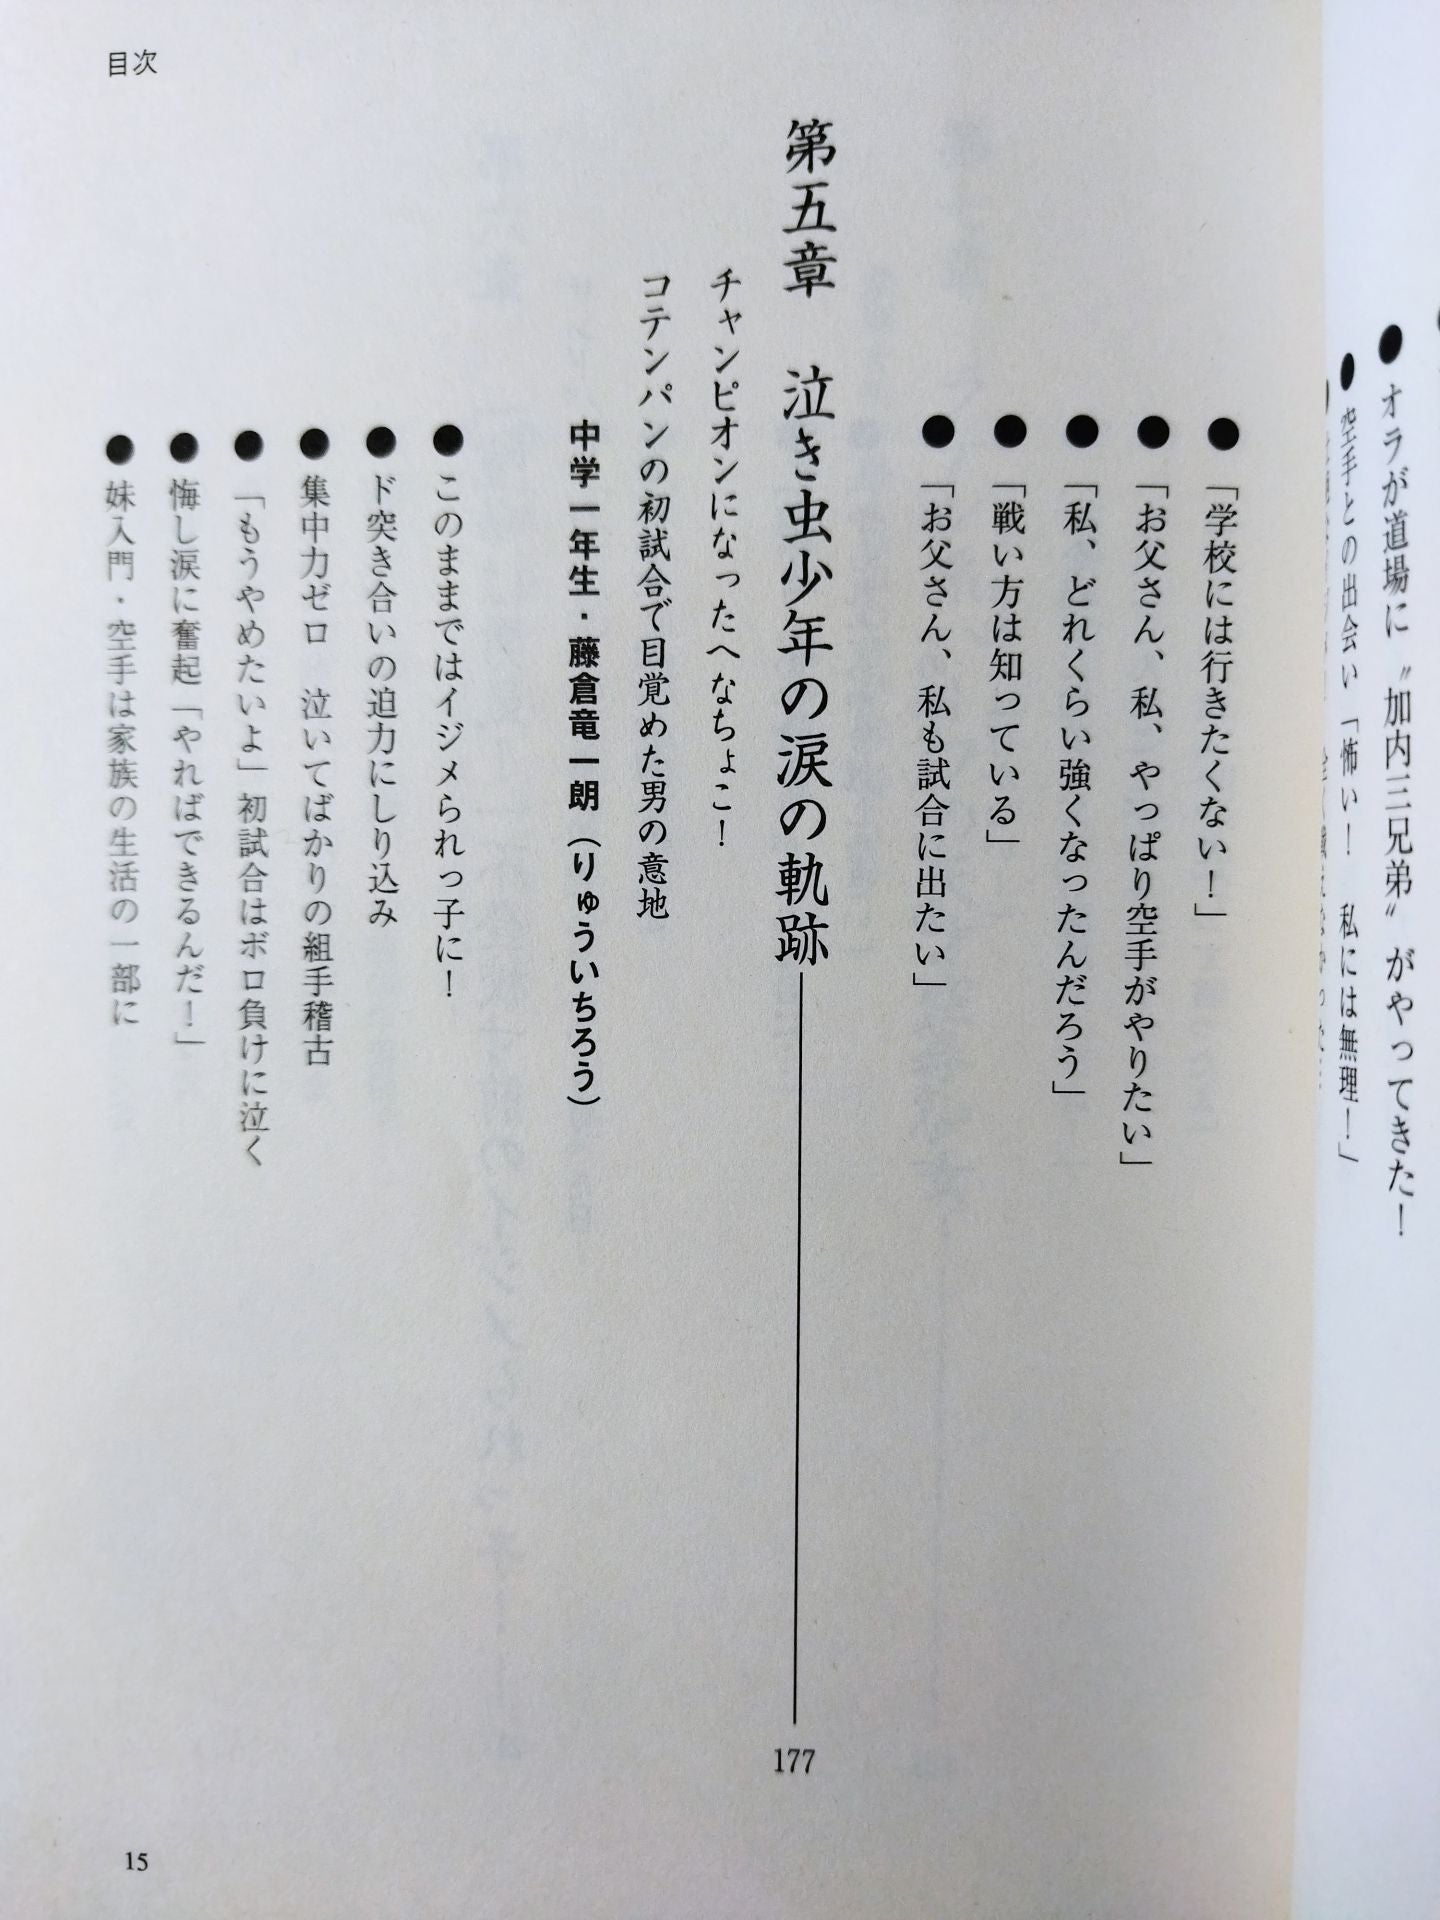 ● オラが道場に〝加内三兄弟〟がやってきた！
● 空手との出会い「怖い！　私には無理！」
目次
● 「学校には行きたくない！」
● 「お父さん、私、やっぱり空手がやりたい」
● 「私、どれくらい強くなったんだろう」
● 「戦い方は知っている」
● 「お父さん、私も試合に出たい」
第五章　泣き虫少年の涙の軌跡 177
チャンピオンになったへなちょこ！
コテンパンの初試合で目覚めた男の意地
中学一年生・藤倉竜一朗（りゅういちろう）
● このままではイジメられっ子に！
● ド突き合いの迫力にしり込み
● 集中力ゼロ　泣いてばかりの組手稽古
● 「もうやめたいよ」初試合はボロ負けに泣く
● 悔し涙に奮起「やればできるんだ！」
● 妹入門・空手は家族の生活の一部に
15